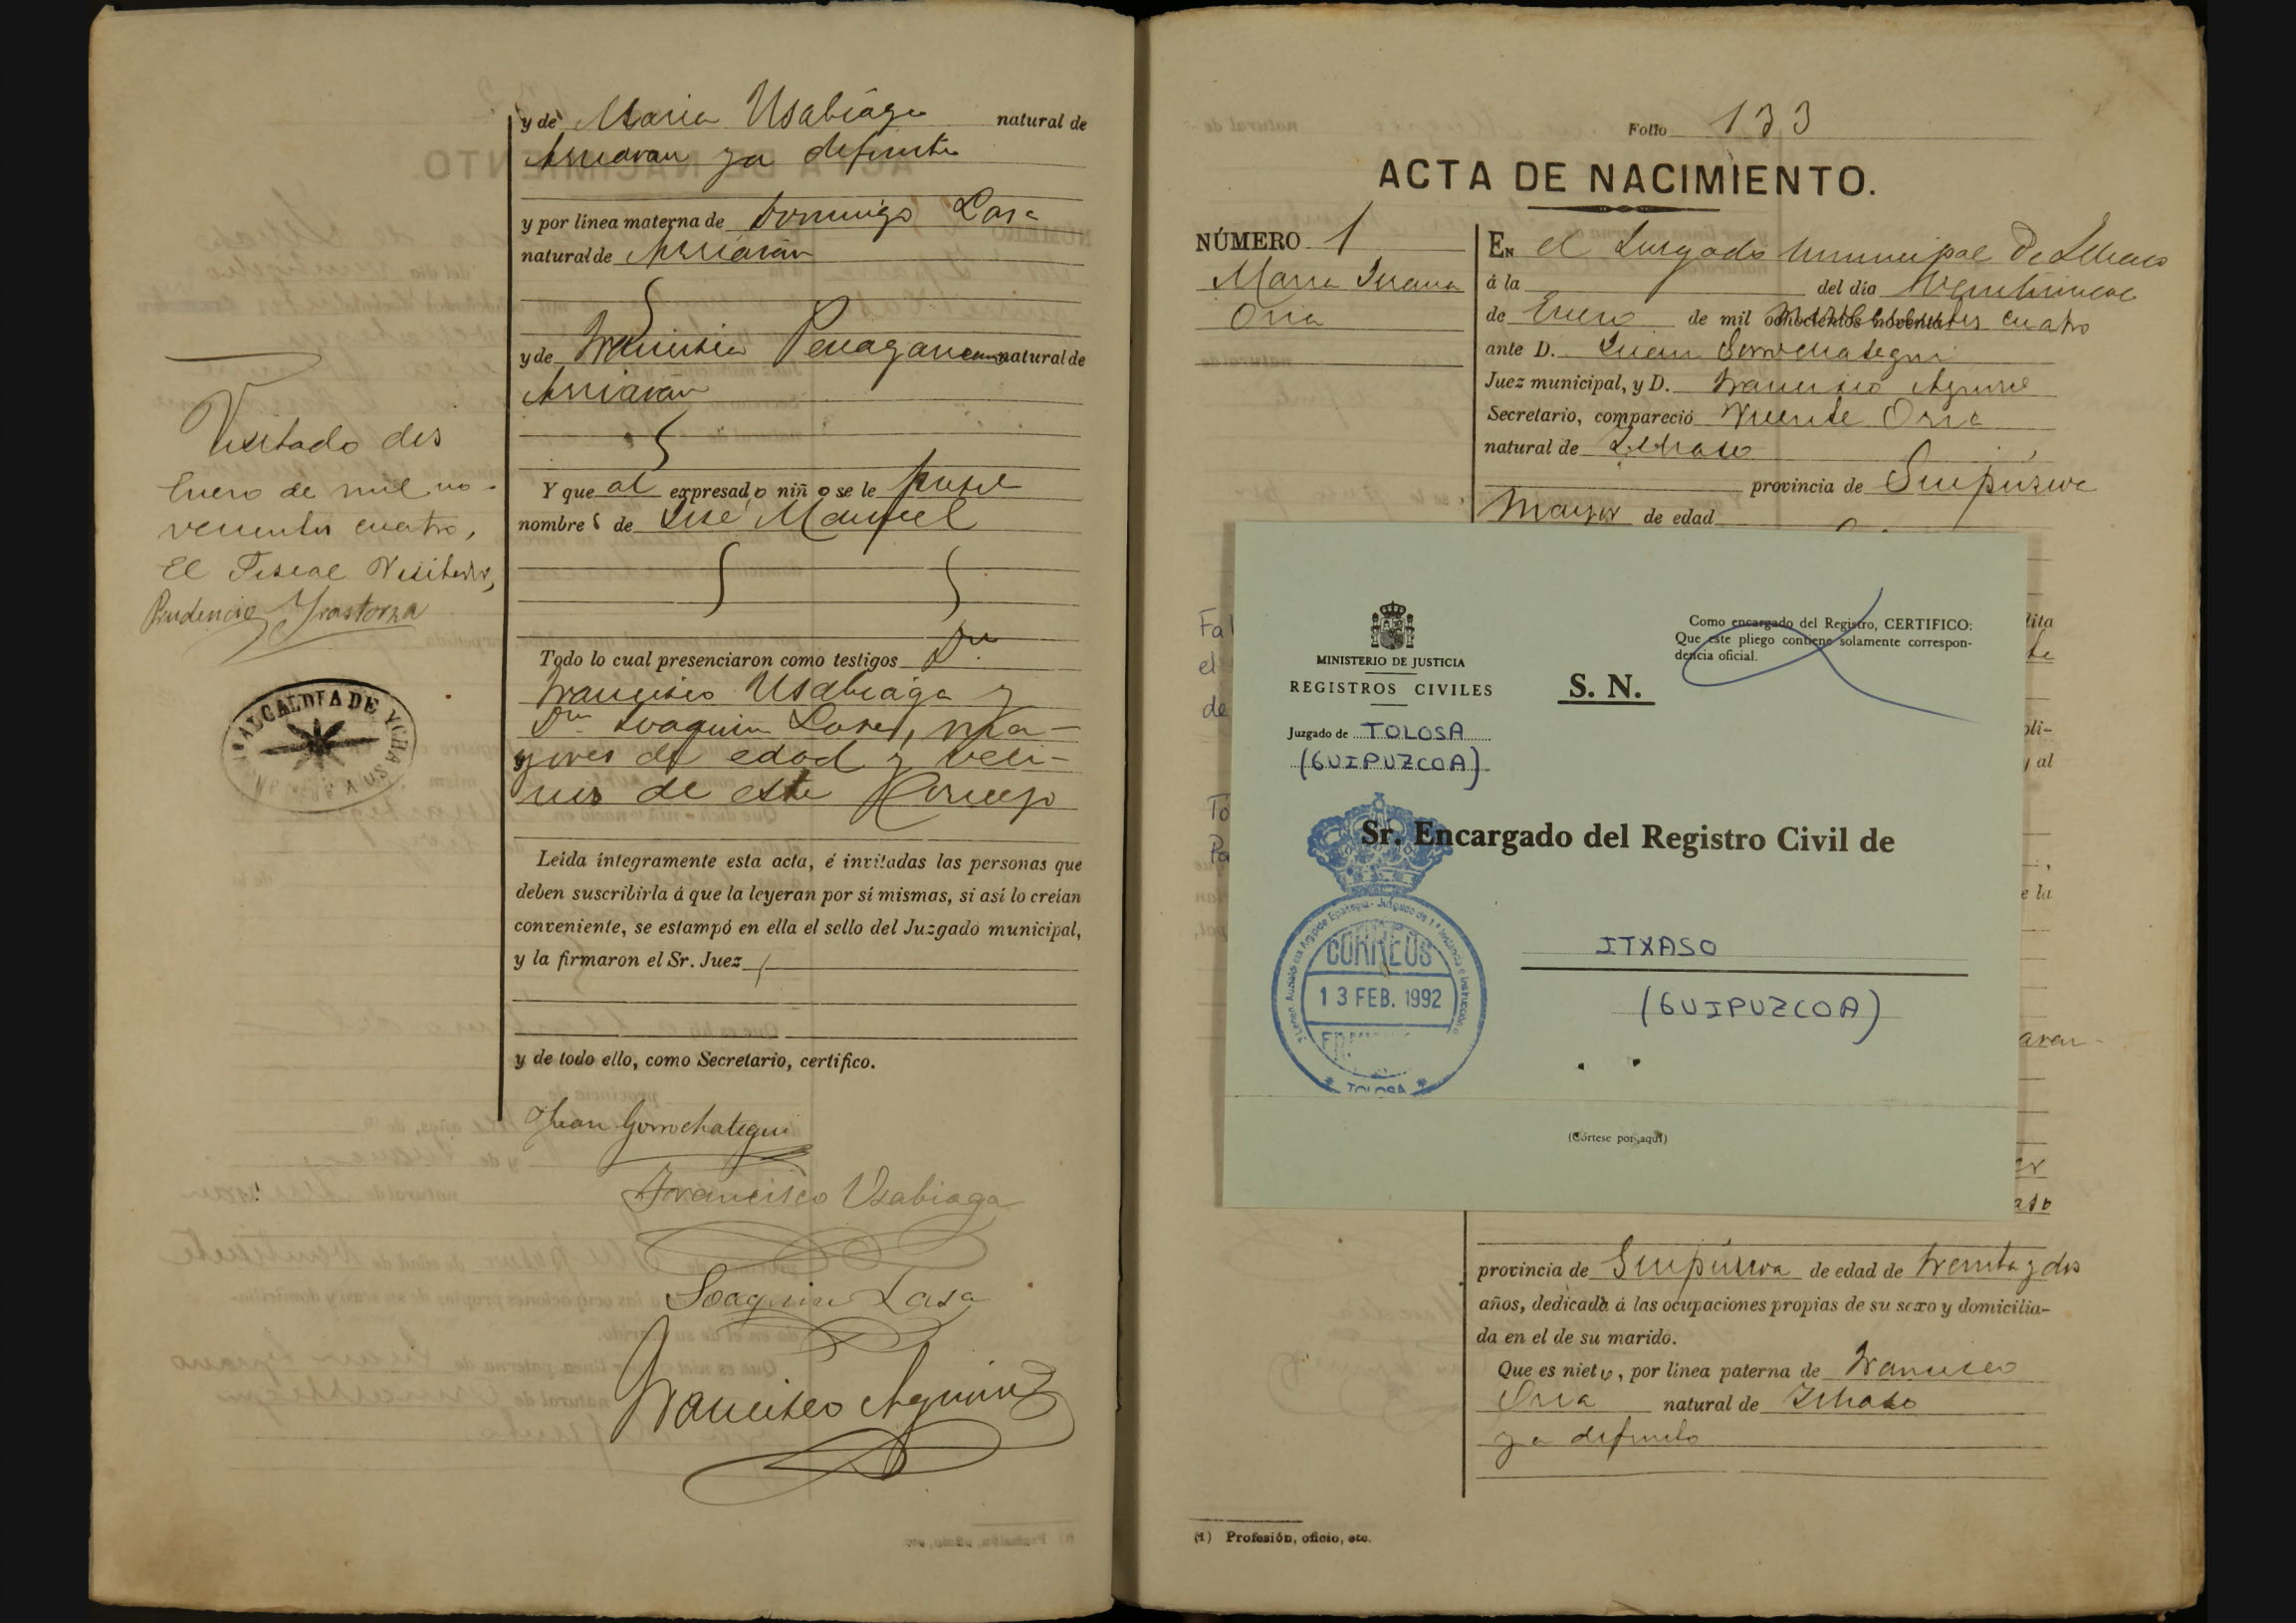 y de Maria Usabiaga natural de
Arriaran ya difunta
y por línea materna de Domingo Lasa
natural de Arriarán
y de Francisca natural de
Arriaran
Y que al expresado niño se le puso
nombres de José Manuel
Todo lo cual presenciaron como testigos Dn.
Francisco Usabiaga y
Dn. Joaquin Lasa, ma-
yores de edad y veci-
nos de este Concejo
Leída íntegramente esta acta, é invitadas las personas que
deben suscribirla á que la leyeran por sí mismas, si así lo creían
conveniente, se estampó en ella el sello del Juzgado municipal,
y la firmaron el Sr. Juez
y de todo ello, como Secretario, certifico.
Juan Gorrochategui
Francisco Usabiaga
Joaquin Lasa
Francisco Aguirre
Visitado dos
Enero de mil no-
vecientos cuatro,
El Fiscal Visitador,
Prudencio Yrastorza
ALCALDIA DE YCHASO
Folio 133
ACTA DE NACIMIENTO.
NÚMERO 1
Maria Juana
Oria
EN el Juzgado Municipal de Ichaso
á la del día Veintinueve
de Enero de mil novecientos cuatro
ante D. Juan Gorrochategui
Juez municipal, y D. Francisco Aguirre
Secretario, compareció Vicente Oria
natural de Ichaso
provincia de Guipúzcoa
Mayor de edad
MINISTERIO DE JUSTICIA
REGISTROS CIVILES
S. N.
Como encargado del Registro, CERTIFICO:
Que este pliego contiene solamente correspon-
dencia oficial.
Juzgado de TOLOSA
(GUIPUZCOA)
Sr. Encargado del Registro Civil de
ITXASO
(GUIPUZCOA)
CORREOS
13 FEB. 1992
TOLOSA
(Córtese por aquí)
provincia de Guipúzcoa de edad de treinta y dos
años, dedicada á las ocupaciones propias de su sexo y domicilia-
da en el de su marido.
Que es nieta, por línea paterna de Francisco
Oria natural de Ichaso
ya difunto
(1) Profesión, oficio, etc.